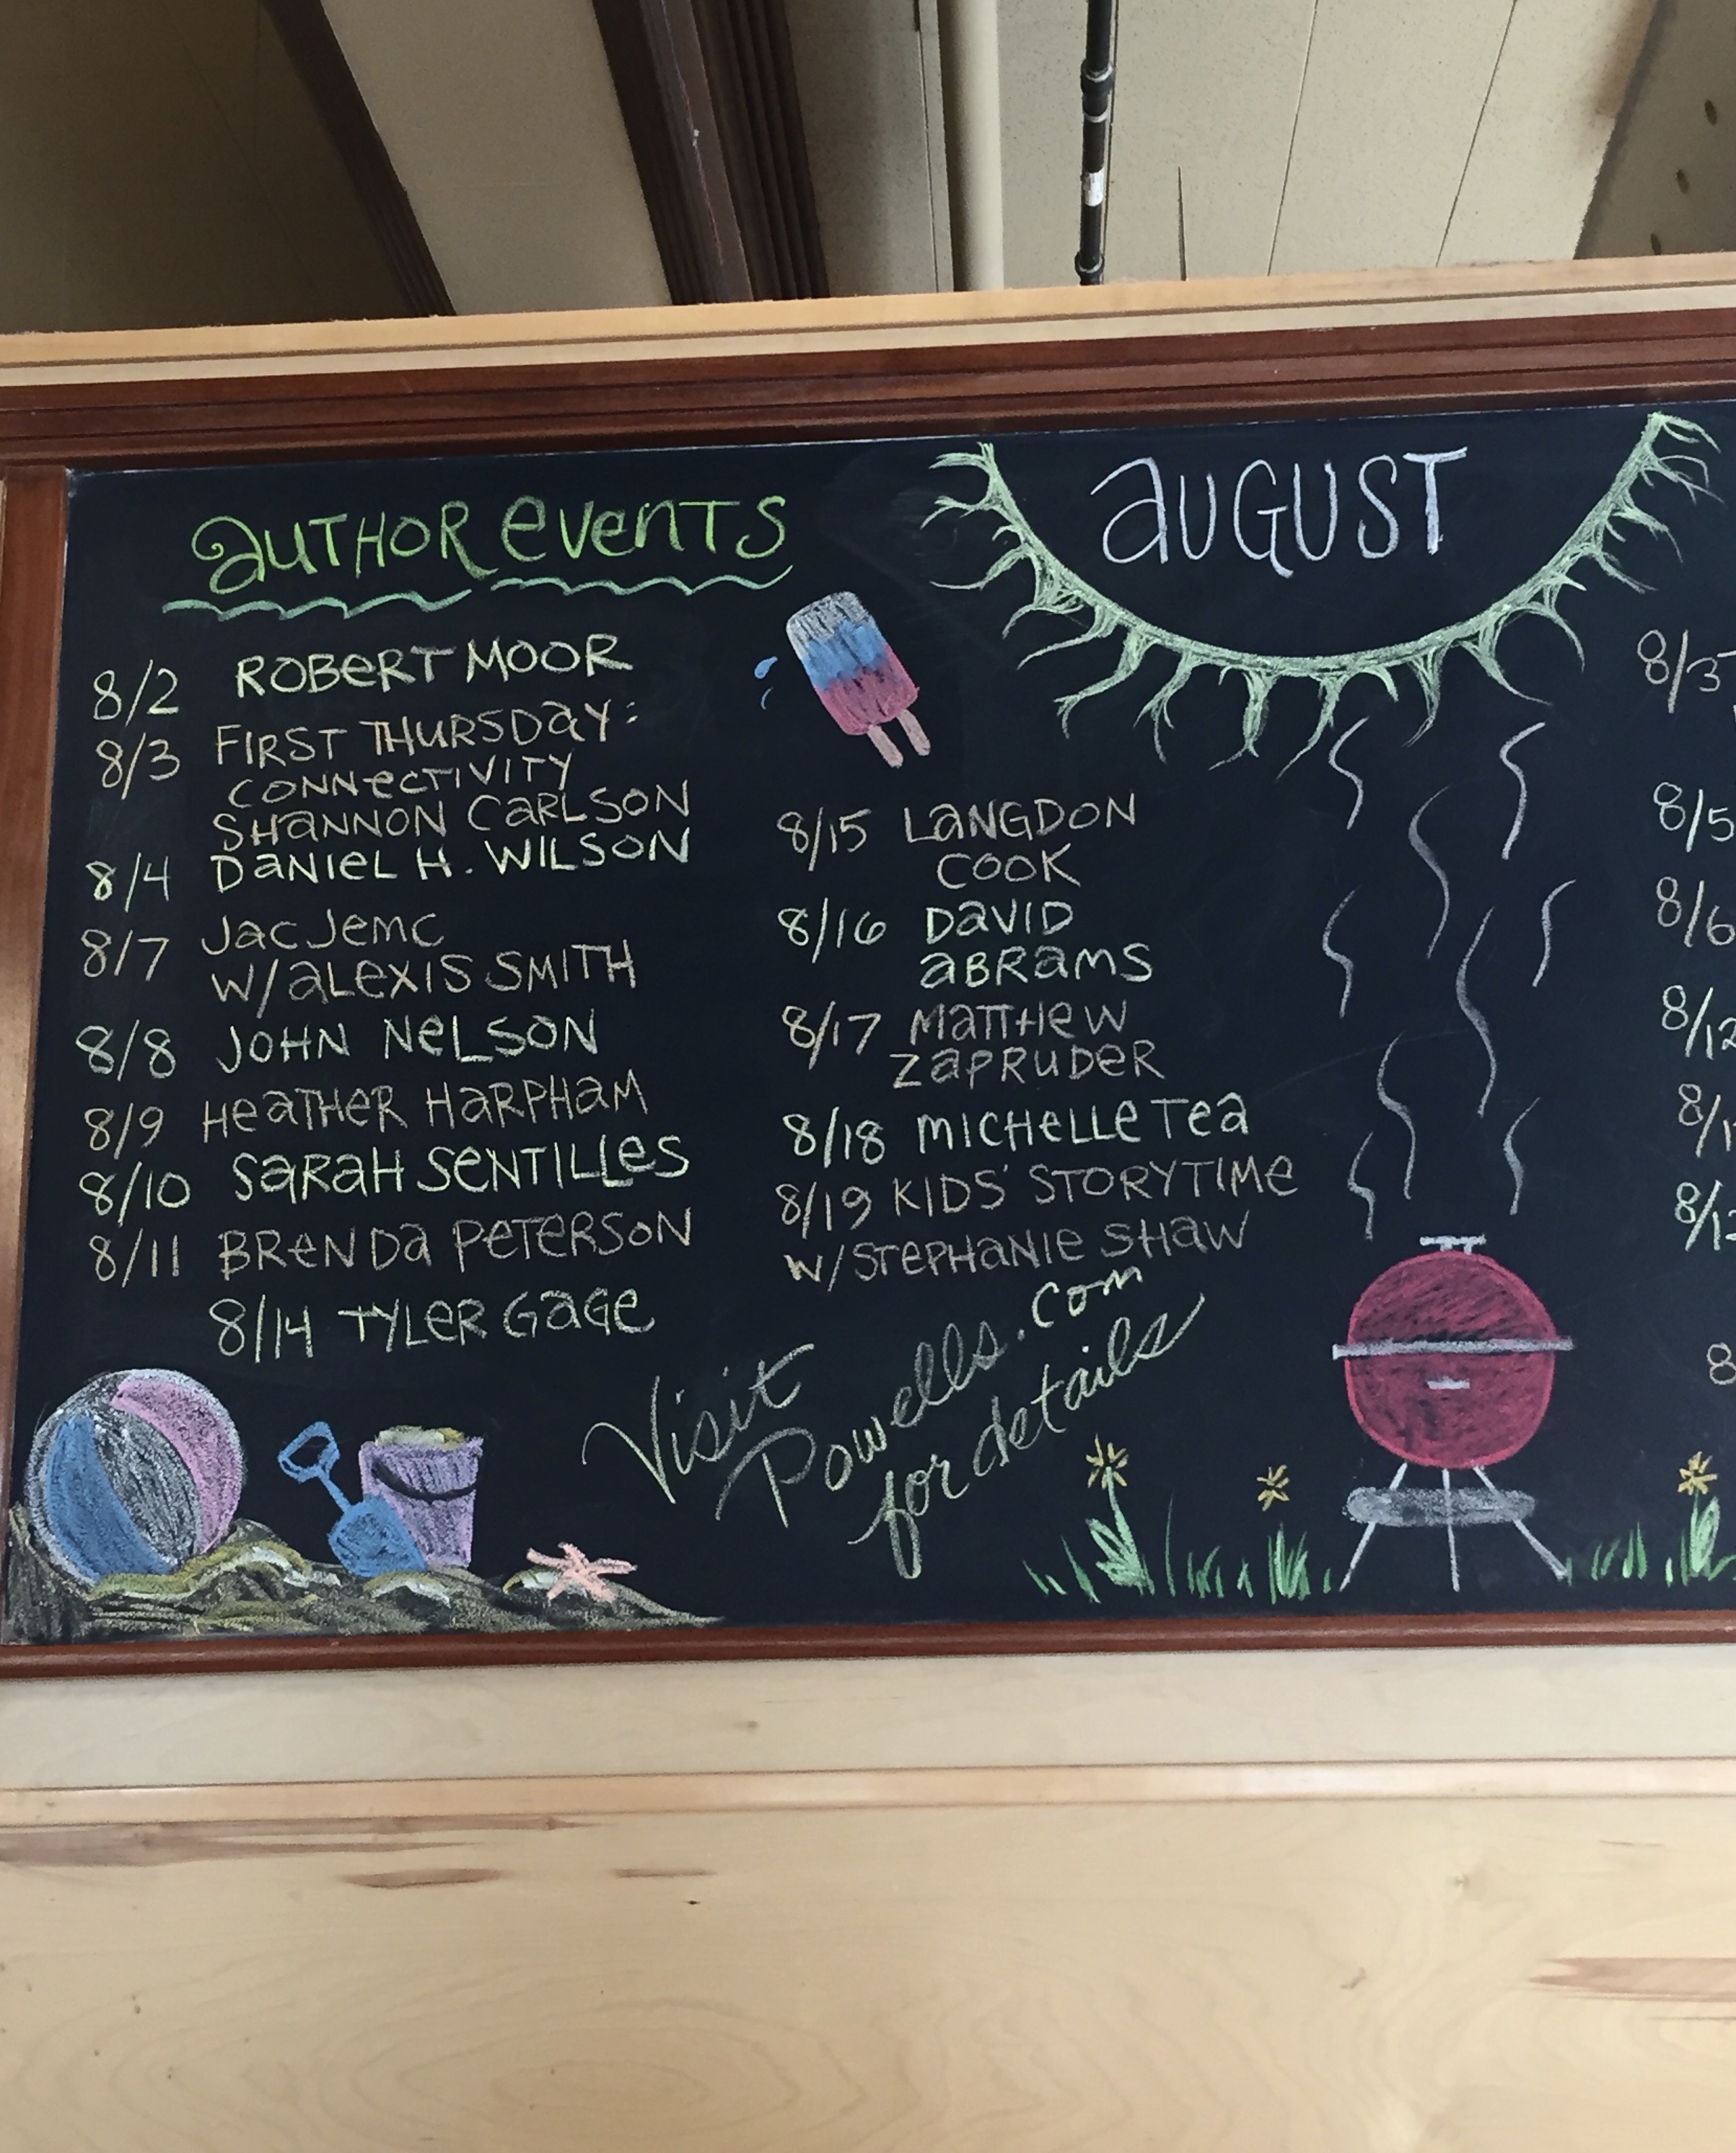 AUTHOR EVENTS
8/2 ROBERT MOOR
8/3 FIRST THURSDAY:
CONNECTIVITY
SHANNON CARLSON
8/4 DANIEL H. WILSON
8/7 JAC JEMC
W/ALEXIS SMITH
8/8 JOHN NELSON
8/9 HEATHER HARPHAM
8/10 SARAH SENTILLES
8/11 BRENDA PETERSON
8/14 TYLER GAGE
AUGUST
8/15 LANGDON
COOK
8/16 DAVID
ABRAMS
8/17 MATTHEW
ZAPRUDER
8/18 MICHELLE TEA
8/19 KIDS' STORYTIME
W/STEPHANIE SHAW
Visit
Powells.com
for details
8/3
8/5
8/6
8/12